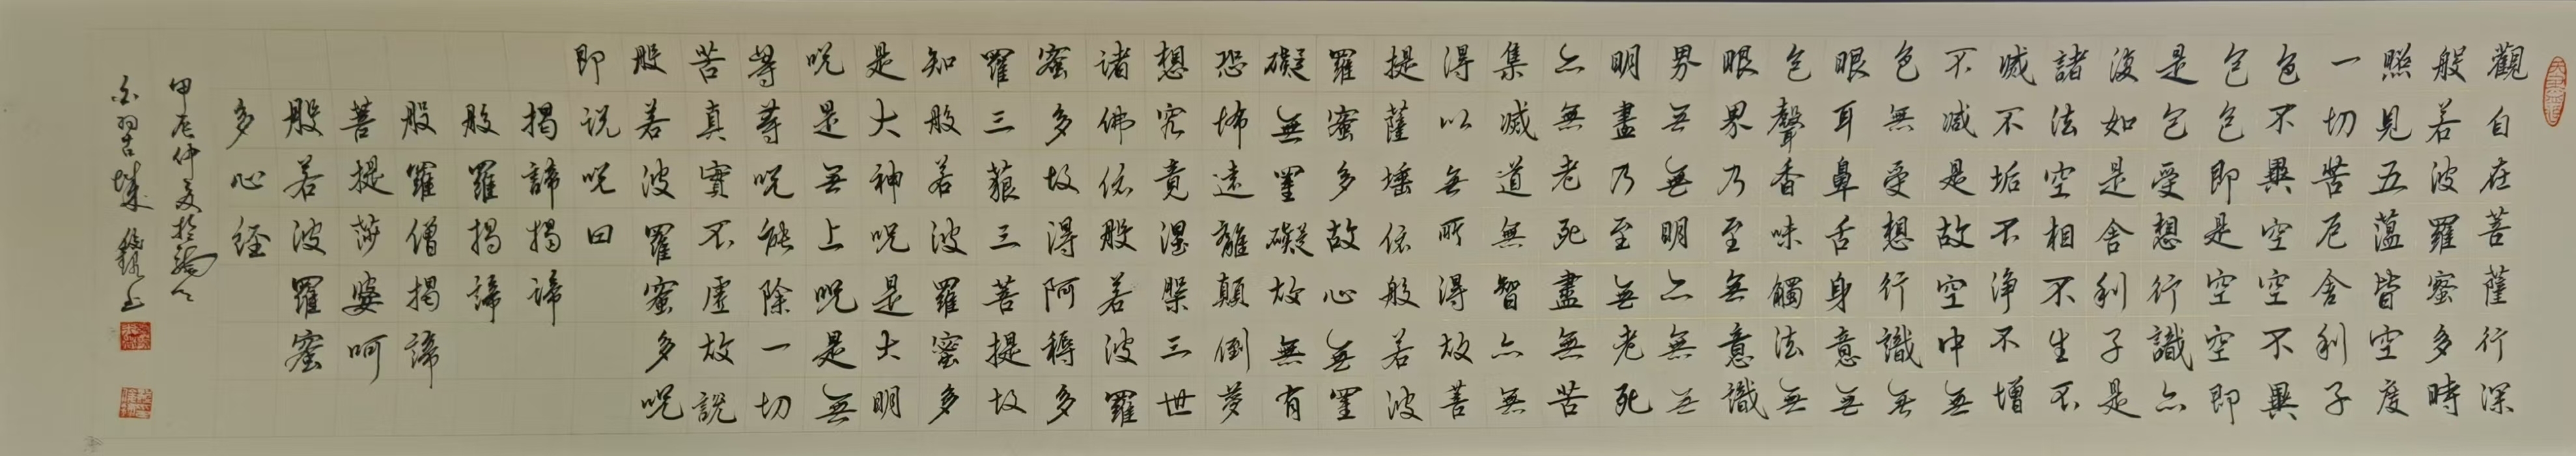 觀自在菩薩行深
般若波羅蜜多時
照見五蘊皆空度
一切苦厄舍利子
色不異空空不異
色色即是空空即
是色受想行識亦
復如是舍利子是
諸法空相不生不
滅不垢不淨不增
不減是故空中無
色無受想行識無
眼耳鼻舌身意無
色聲香味觸法無
眼界乃至無意識
界無無明亦無無
明盡乃至無老死
亦無老死盡無苦
集滅道無智亦無
得以無所得故菩
提薩埵依般若波
羅蜜多故心無罣
礙無罣礙故無有
恐怖遠離顛倒夢
想究竟涅槃三世
諸佛依般若波羅
蜜多故得阿耨多
羅三藐三菩提故
知般若波羅蜜多
是大神咒是大明
咒是無上咒是無
等等咒能除一切
苦真實不虛故說
般若波羅蜜多咒
即说咒曰
揭諦揭諦
般羅揭諦
般羅僧揭諦
菩提莎婆呵
般若波羅蜜
多心经
甲辰仲夏於